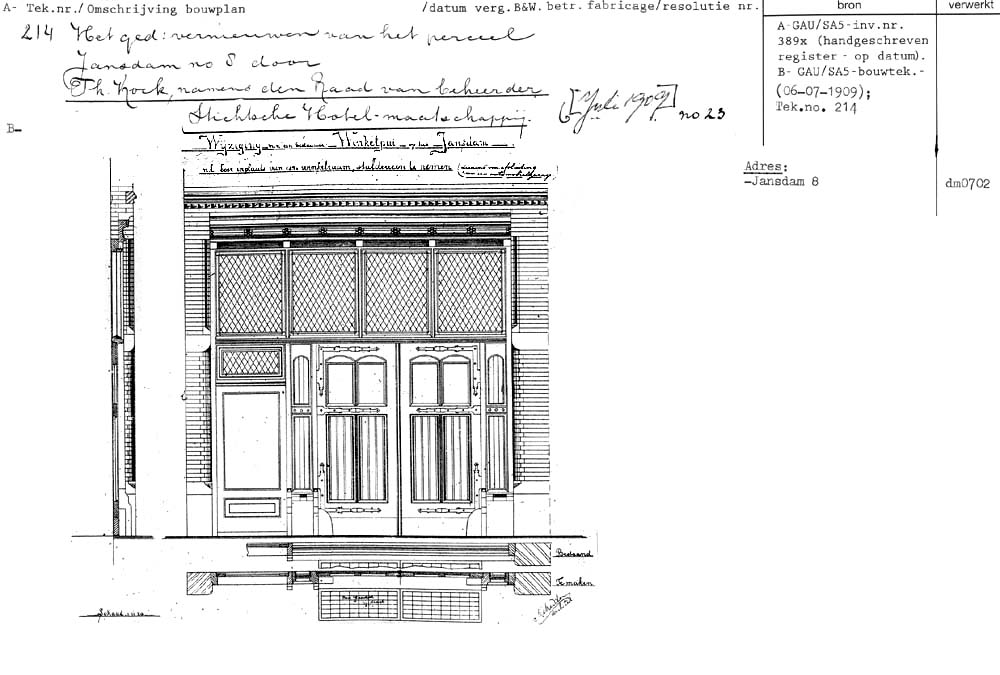 A- Tek.nr./Omschrijving bouwplan /datum verg.B&W. betr. fabricage/resolutie nr.
bron
verwerkt
214 Het ged: vernieuwen van het perceel
Jansdam no 8 door
Th. Kock, namens den Raad van beheer der
Stichtsche Hotel-maatschappij.
[Juli 1909] no 23
A-GAU/SA5-inv.nr.
389x (handgeschreven
register - op datum).
B- GAU/SA5-bouwtek.-
(06-07-1909);
Tek.no. 214
B-
Wijziging van een bestaande Winkelpui op het Jansdam
n.l. Een inplaats van een
Adres:
-Jansdam 8
dm0702
Bestaand
Te maken
Schaal